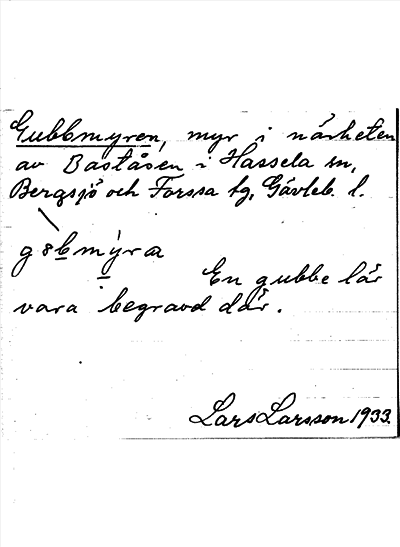 Gubbmyren, myr i närheten
av Baståsen i Hassela sn,
Bergsjö och Forssa tg, Gävleb. l.
g8bmyra
En gubbe lär
vara begravd där.
Lars Larsson 1933.